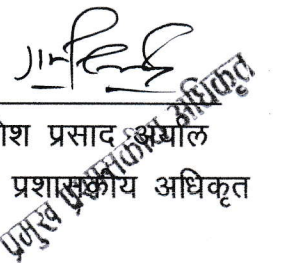 ोश प्रसाद अर्याल
प्रशासकीय अधिकृत
प्रमुख प्रशासकीय अधिकृत